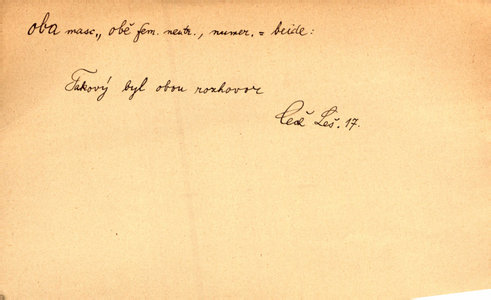 oba masc., obě fem. neutr., numer. = beide:
Takový byl obou rozhovor
Čech Leš. 17.